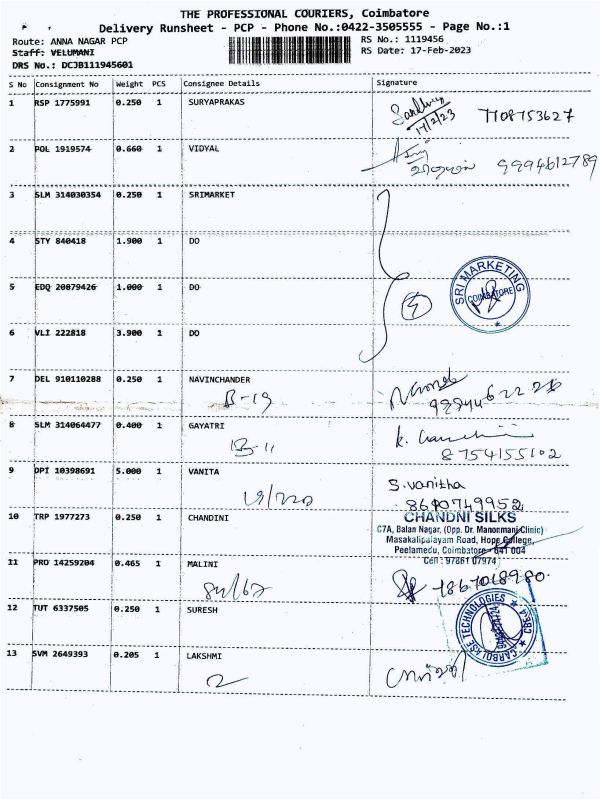 THE PROFESSIONAL COURIERS, Coimbatore
Delivery Runsheet - PCP - Phone No.:0422-3505555 - Page No.:1
Route: ANNA NAGAR PCP RS No.: 1119456
Staff: VELUMANI RS Date: 17-Feb-2023
DRS No.: DCJB111945601
S No Consignment No Weight PCS Consignee Details Signature
1 RSP 1775991 0.250 1 SURYAPRAKAS
17/2/23 7708753627
2 POL 1919574 0.660 1 VIDYAL
9994612789
3 SLM 314030354 0.250 1 SRIMARKET
4 STY 840418 1.900 1 DO
5 EDQ 20079426 1.000 1 DO
SRI MARKETING
COIMBATORE
6 VLI 222818 3.900 1 DO
7 DEL 910110288 0.250 1 NAVINCHANDER
B-19
8 SLM 314064477 0.400 1 GAYATRI
B-11 8754155102
9 DPI 10398691 5.000 1 VANITA S.vanitha
8610749952
10 TRP 1977273 0.250 1 CHANDINI CHANDNI SILKS
C7A, Balan Nagar, (Opp. Dr. Manonmani Clinic)
Masakalipalayam Road, Hope College,
Peelamedu, Coimbatore - 641 004
Cell : 97861 07974
11 PRO 14259204 0.465 1 MALINI
12 TUT 6337505 0.250 1 SURESH
CARBOLASE TECHNOLOGIES
13 SVM 2649393 0.205 1 LAKSHMI
2